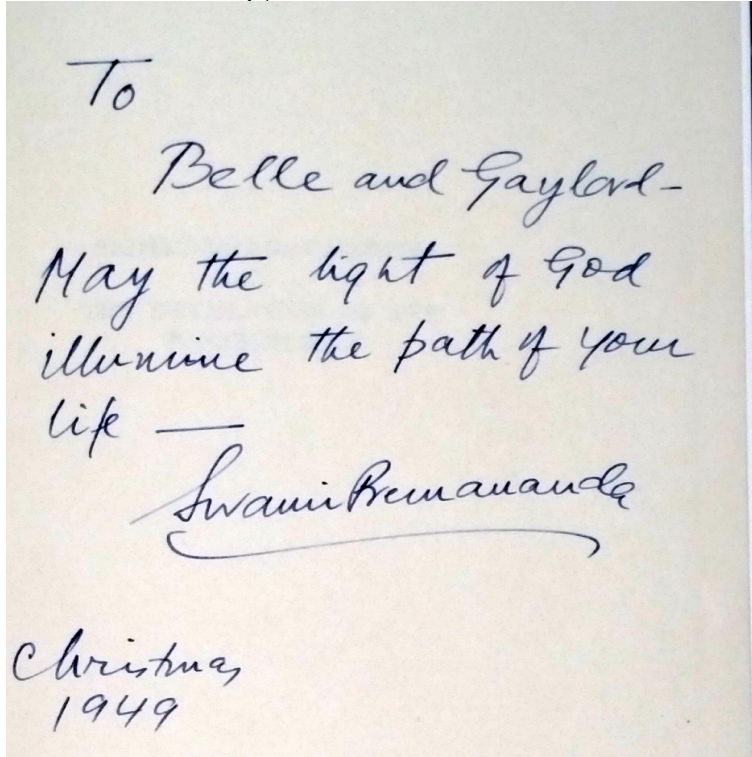 To
Belle and Gaylord-
May the light of God
illumine the path of your
life —
Swami Premananda
Christmas
1949